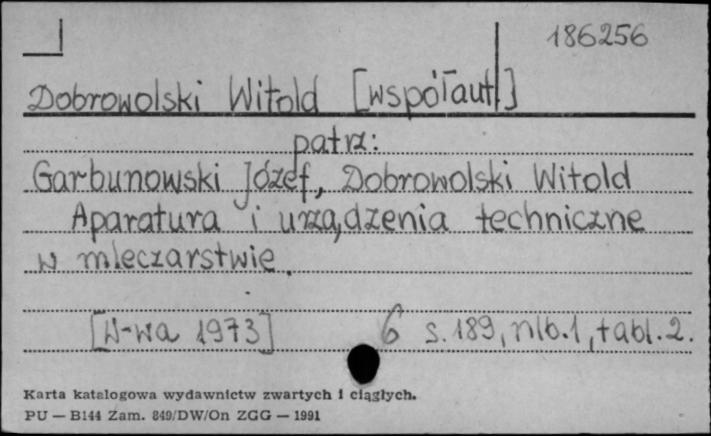 186256
Dobrowolski Witold [współaut.]
patrz:
Garbunowski Józef, Dobrowolski Witold
Aparatura i urządzenia techniczne
w mleczarstwie.
[W-wa 1973] 6 s. 189, nlb. 1, tabl. 2.
Karta katalogowa wydawnictw zwartych i ciągłych.
PU — B144 Zam. 849/DW/On ZGG — 1991